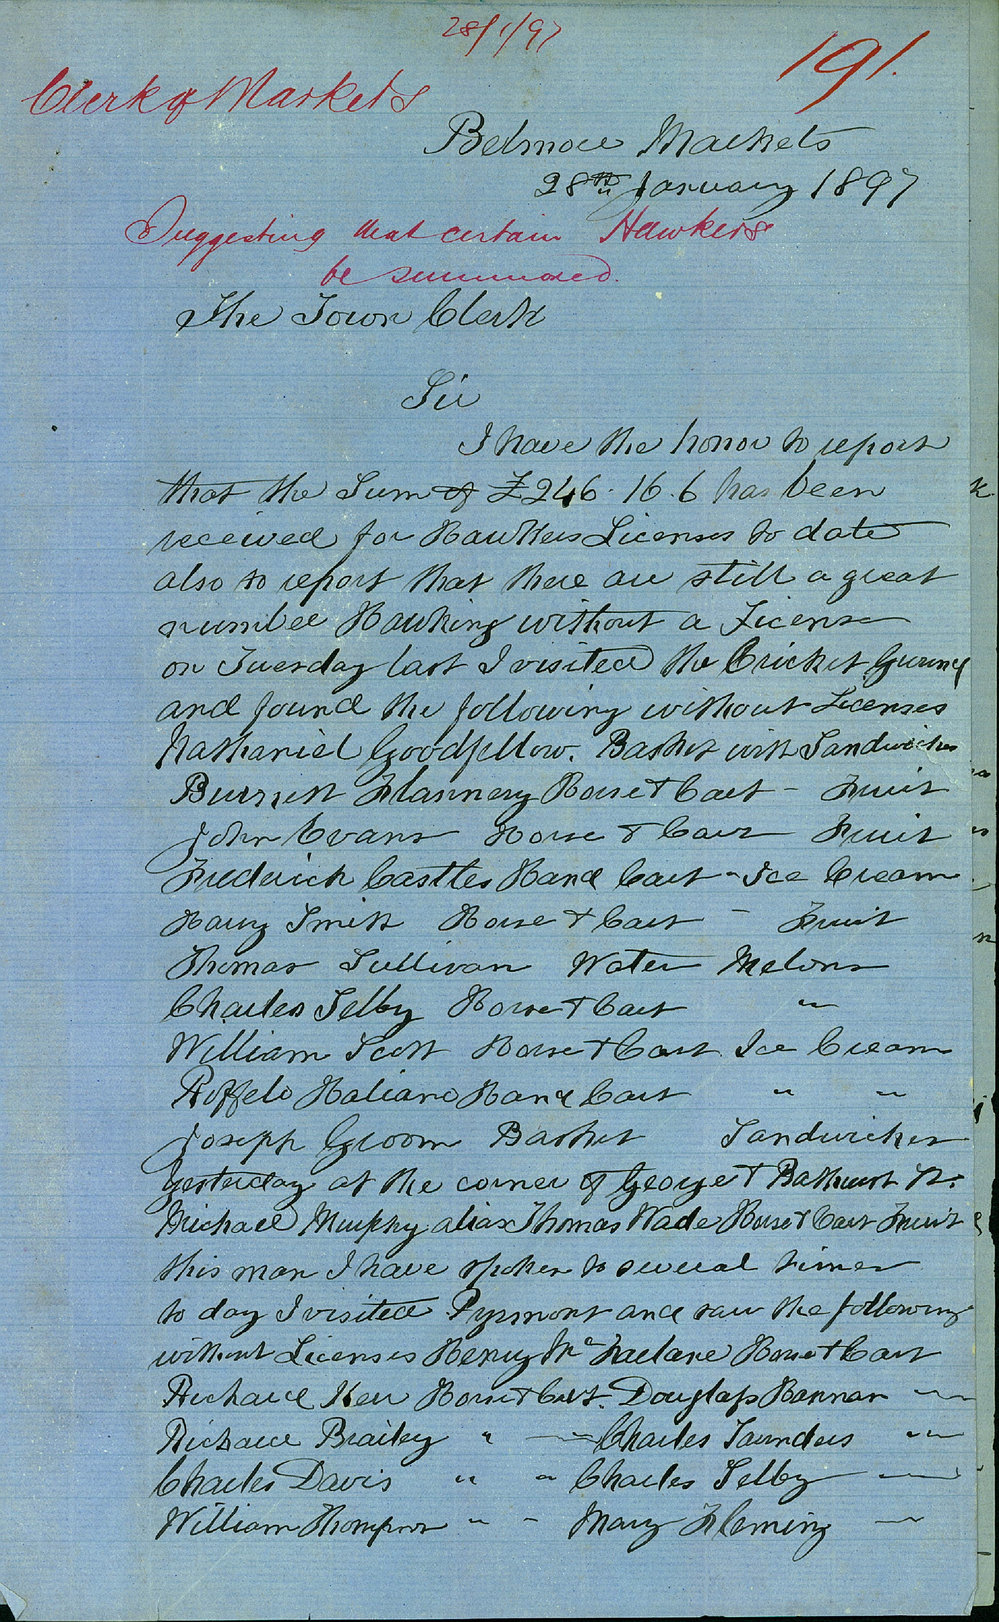 28/1/97
191.
Clerk of Markets
Belmore Markets
28th January 1897
Suggesting that certain Hawkers
be summoned.
The Town Clerk
Sir
I have the honor to report
that the Sum of £246.16.6 has been
received for Hawkers Licenses to date
also to report that there are still a great
number Hawking without a License
on Tuesday last I visited the Cricket Ground
and found the following without Licenses
Nathaniel Goodfellow. Basket with Sandwiches
Burnett Flannery Horse & Cart - Fruit
John Evans Horse & Cart Fruit
Frederick Castles Hand Cart - Ice Cream
Harry Smith Horse & Cart - Fruit
Thomas Sullivan Water Melons
Charles Selby Horse & Cart "
William Scott Horse & Cart Ice Cream
Roffelo Italiano Hand Cart " "
Joseph Groom Basket Sandwiches
Yesterday at the corner of George & Bathurst St.
Michael Murphy alias Thomas Wade Horse & Cart Fruit
this man I have spoken to several times
to day I visited Pyrmont and saw the following
without Licenses Henry McFarlane Horse & Cart
Richard Kerr Horse & Cart. Douglass Bannan "
Richard Brailey " " Charles Saunders "
Charles Davis " " Charles Selby "
William Thompson " " Mary Fleming "